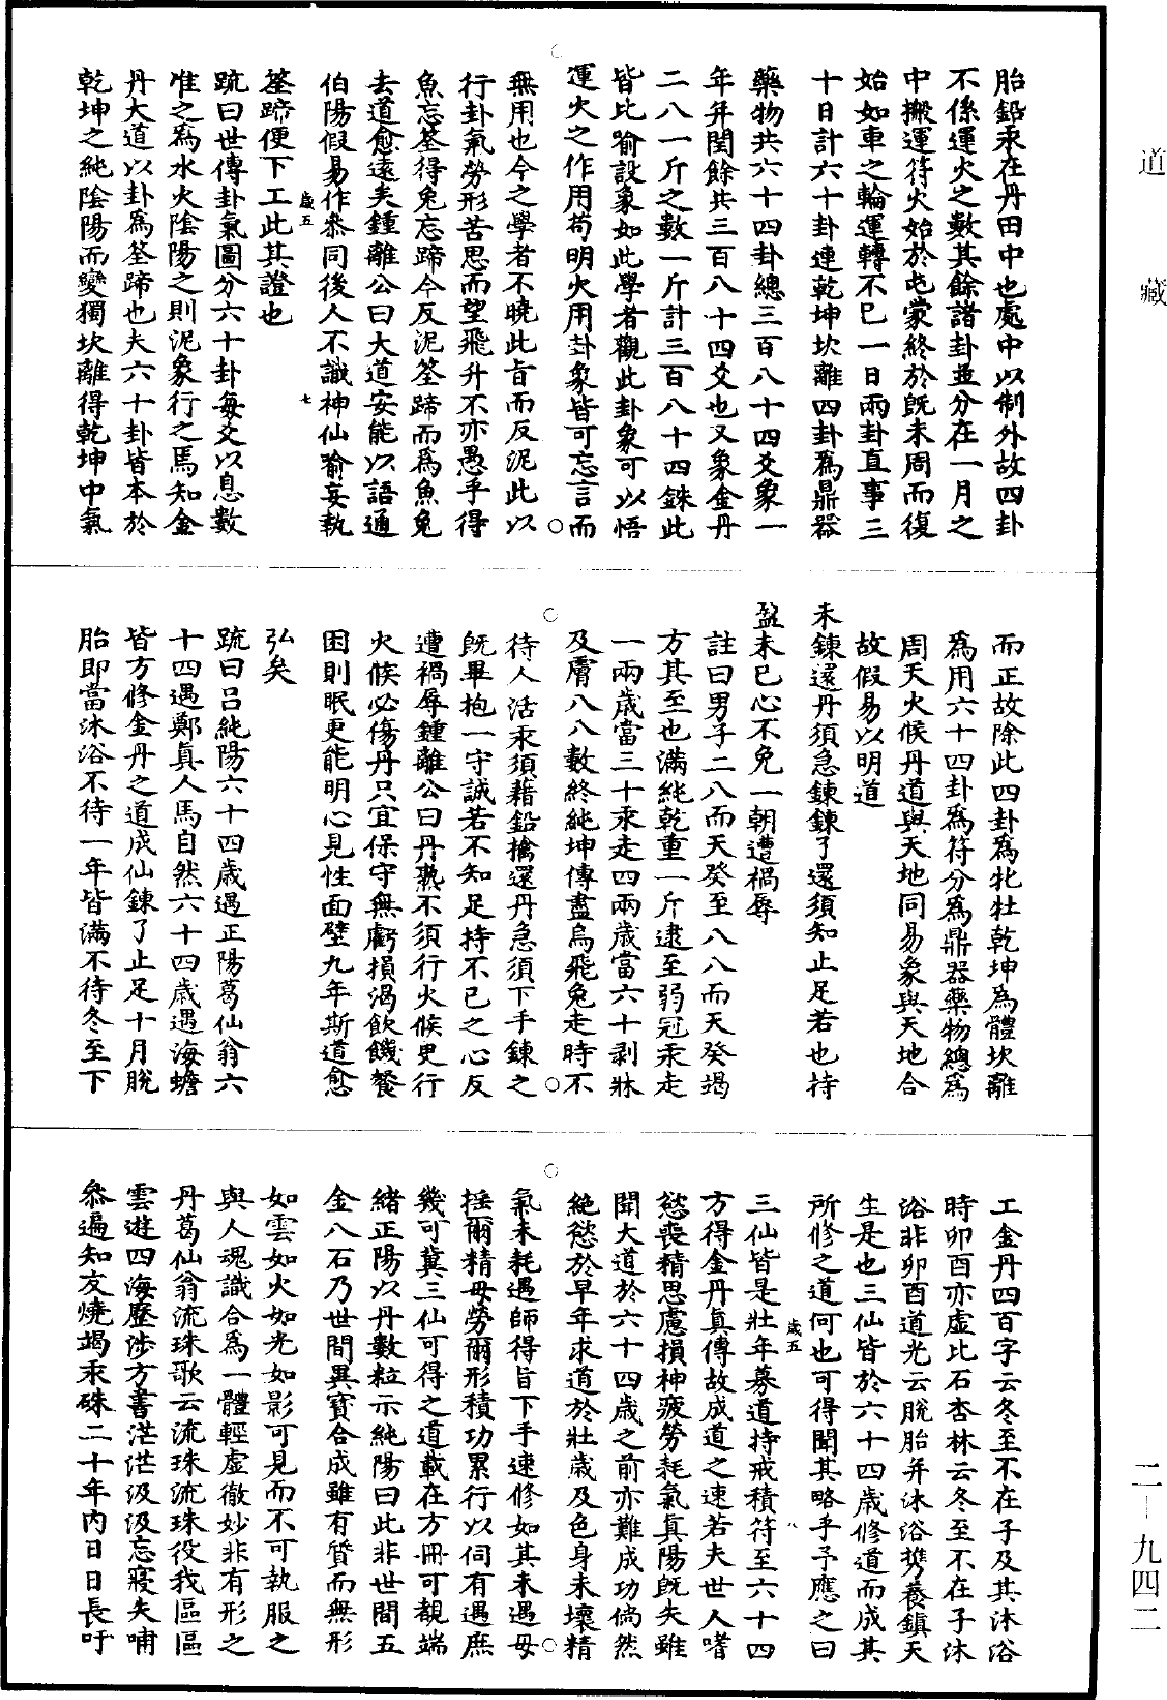 道藏
胎鉛汞在丹田中也處中以制外故四卦
不係運火之數其餘諸卦並分在一月之
中搬運符火始於屯蒙終於既未周而復
始如車之輪運轉不已一日兩卦直事三
十日計六十卦連乾坤坎離四卦爲鼎器
藥物共六十四卦總三百八十四爻象一
年并閏餘共三百八十四爻也又象金丹
二八一斤之數一斤計三百八十四銖此
皆比喻設象如此學者觀此卦象可以悟
運火之作用苟明火用卦象皆可忘言而
無用也今之學者不曉此旨而反泥此以
行卦氣勞形苦思而望飛升不亦愚乎得
魚忘筌得兔忘蹄今反泥筌蹄而爲魚兔
去道愈遠矣鍾離公曰大道安能以語通
伯陽假易作叅同後人不識神仙喻妄執
歲五
七
筌蹄便下工此其證也
疏曰世傳卦氣圖分六十卦每爻以息數
准之爲水火陰陽之則泥象行之焉知金
丹大道以卦爲筌蹄也夫六十卦皆本於
乾坤之純陰陽而變獨坎離得乾坤中氣
而正故除此四卦爲牝牡乾坤爲體坎離
爲用六十四卦爲符分爲鼎器藥物總爲
周天火候丹道與天地同易象與天地合
故假易以明道
未鍊還丹須急鍊鍊了還須知止足若也持
盈未已心不免一朝遭禍辱
註曰男子二八而天癸至八八而天癸竭
方其至也滿純乾重一斤逮至弱冠汞走
一兩歲當三十汞走四兩歲當六十剥牀
及膚八八數終純坤傳盡烏飛兔走時不
待人活汞須藉鉛擒還丹急須下手鍊之
既畢抱一守誠若不知足持不已之心反
遭禍辱鍾離公曰丹熟不須行火候更行
火候必傷丹只宜保守無虧損渴飲饑餐
困則眠更能明心見性面壁九年斯道愈
弘矣
疏曰呂純陽六十四歲遇正陽葛仙翁六
十四遇鄭真人馬自然六十四歲遇海蟾
皆方修金丹之道成仙鍊了止足十月脫
胎即當沐浴不待一年皆滿不待冬至下
工金丹四百字云冬至不在子及其沐浴
時卯酉亦虛比石杏林云冬至不在子沐
浴非卯酉道光云脫胎并沐浴㩦養鎮天
生是也三仙皆於六十四歲修道而成其
所修之道何也可得聞其略乎予應之曰
歲五
八
三仙皆是壯年慕道持戒積符至六十四
方得金丹真傳故成道之速若夫世人嗜
慾喪精思慮損神疲勞耗氣真陽既失雖
聞大道於六十四歲之前亦難成功倘然
絶慾於早年求道於壯歲及色身未壞精
氣未耗遇師得旨下手速修如其未遇毋
揺爾精毋勞爾形積功累行以伺有遇庶
幾可冀三仙可得之道載在方冊可覩端
緒正陽以丹數粒示純陽曰此非世間五
金八石乃世間異寶合成雖有質而無形
如雲如火如光如影可見而不可執服之
與人魂識合爲一體輕虛徹妙非有形之
丹葛仙翁流珠歌云流珠流珠役我區區
雲遊四海歷涉方書茫茫汲汲忘寢失哺
叅遍知友燒竭汞硃二十年内日日長吁
二一九四二